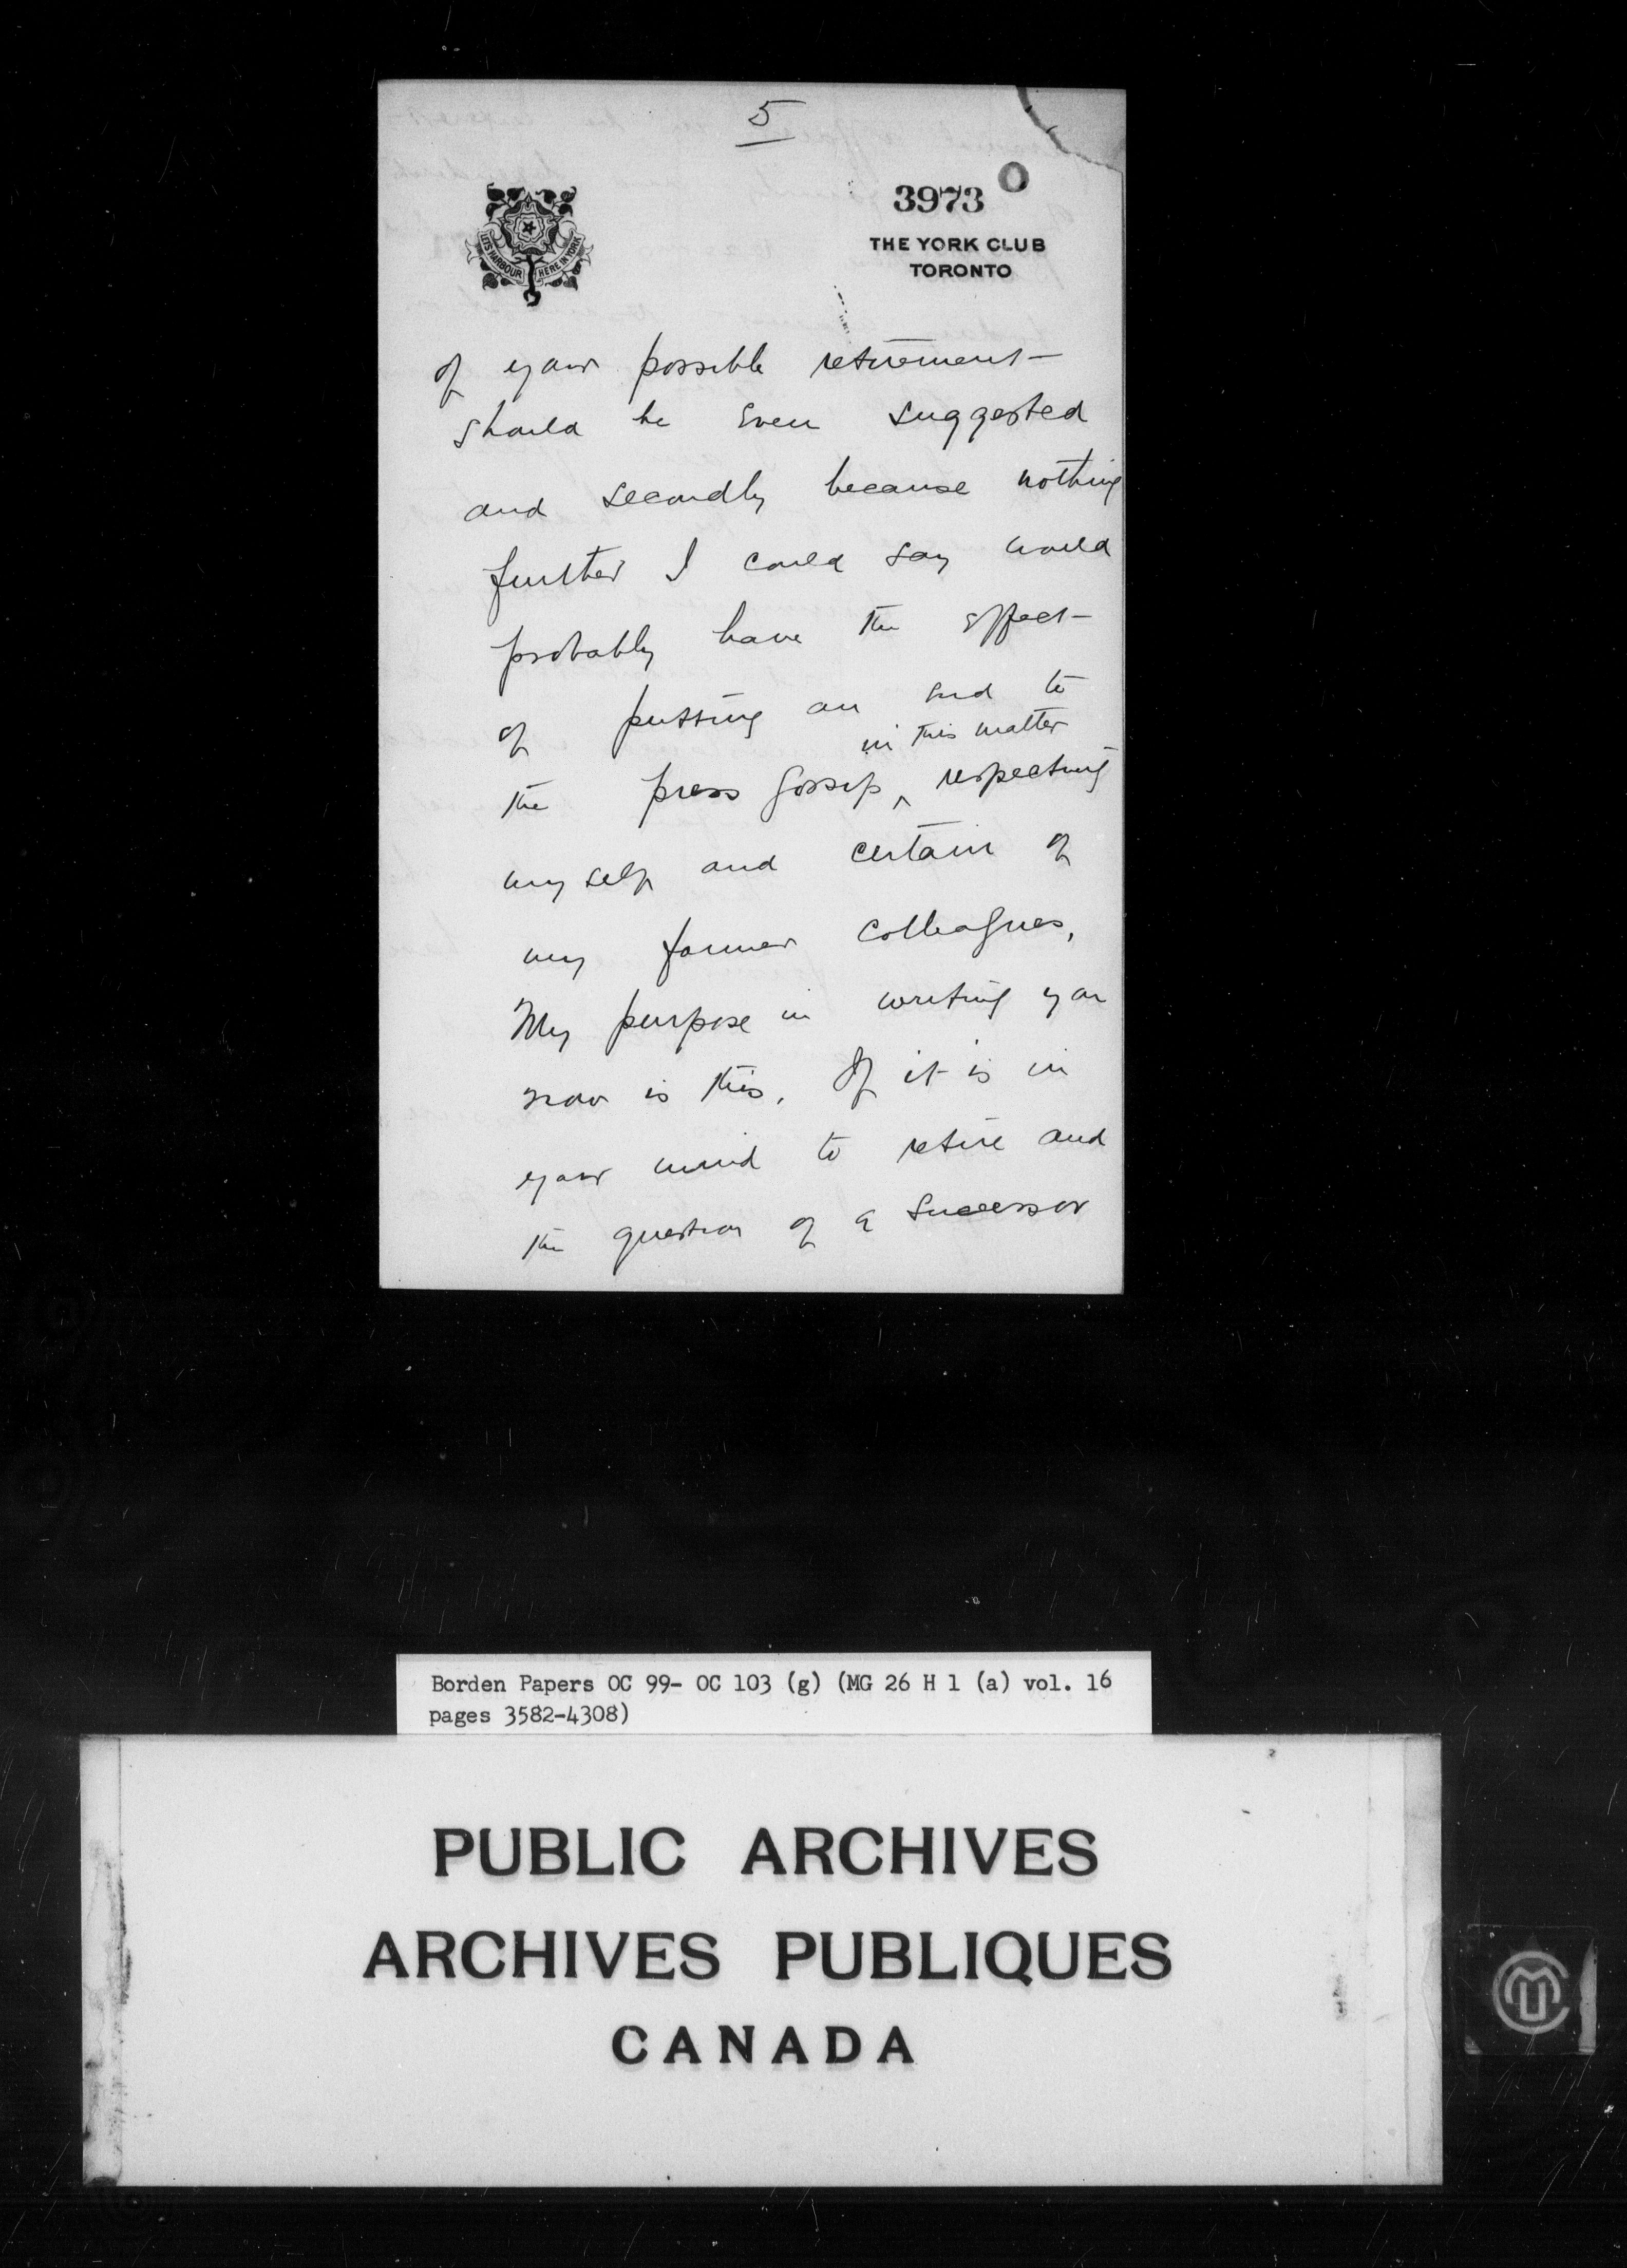 5
3973
THE YORK CLUB
TORONTO
LET'S HARBOUR HERE IN YORK
of your possible retirement
should be even suggested
and secondly because nothing
further I could say would
probably have the effect
of putting an end to
in this matter
the press gossip ^ respecting
myself and certain of
my former colleagues,
My purpose in writing you
now is this. If it is in
your mind to retire and
the question of a successor
Borden Papers OC 99- OC 103 (g) (MG 26 H 1 (a) vol. 16
pages 3582-4308)
PUBLIC ARCHIVES
ARCHIVES PUBLIQUES
CANADA